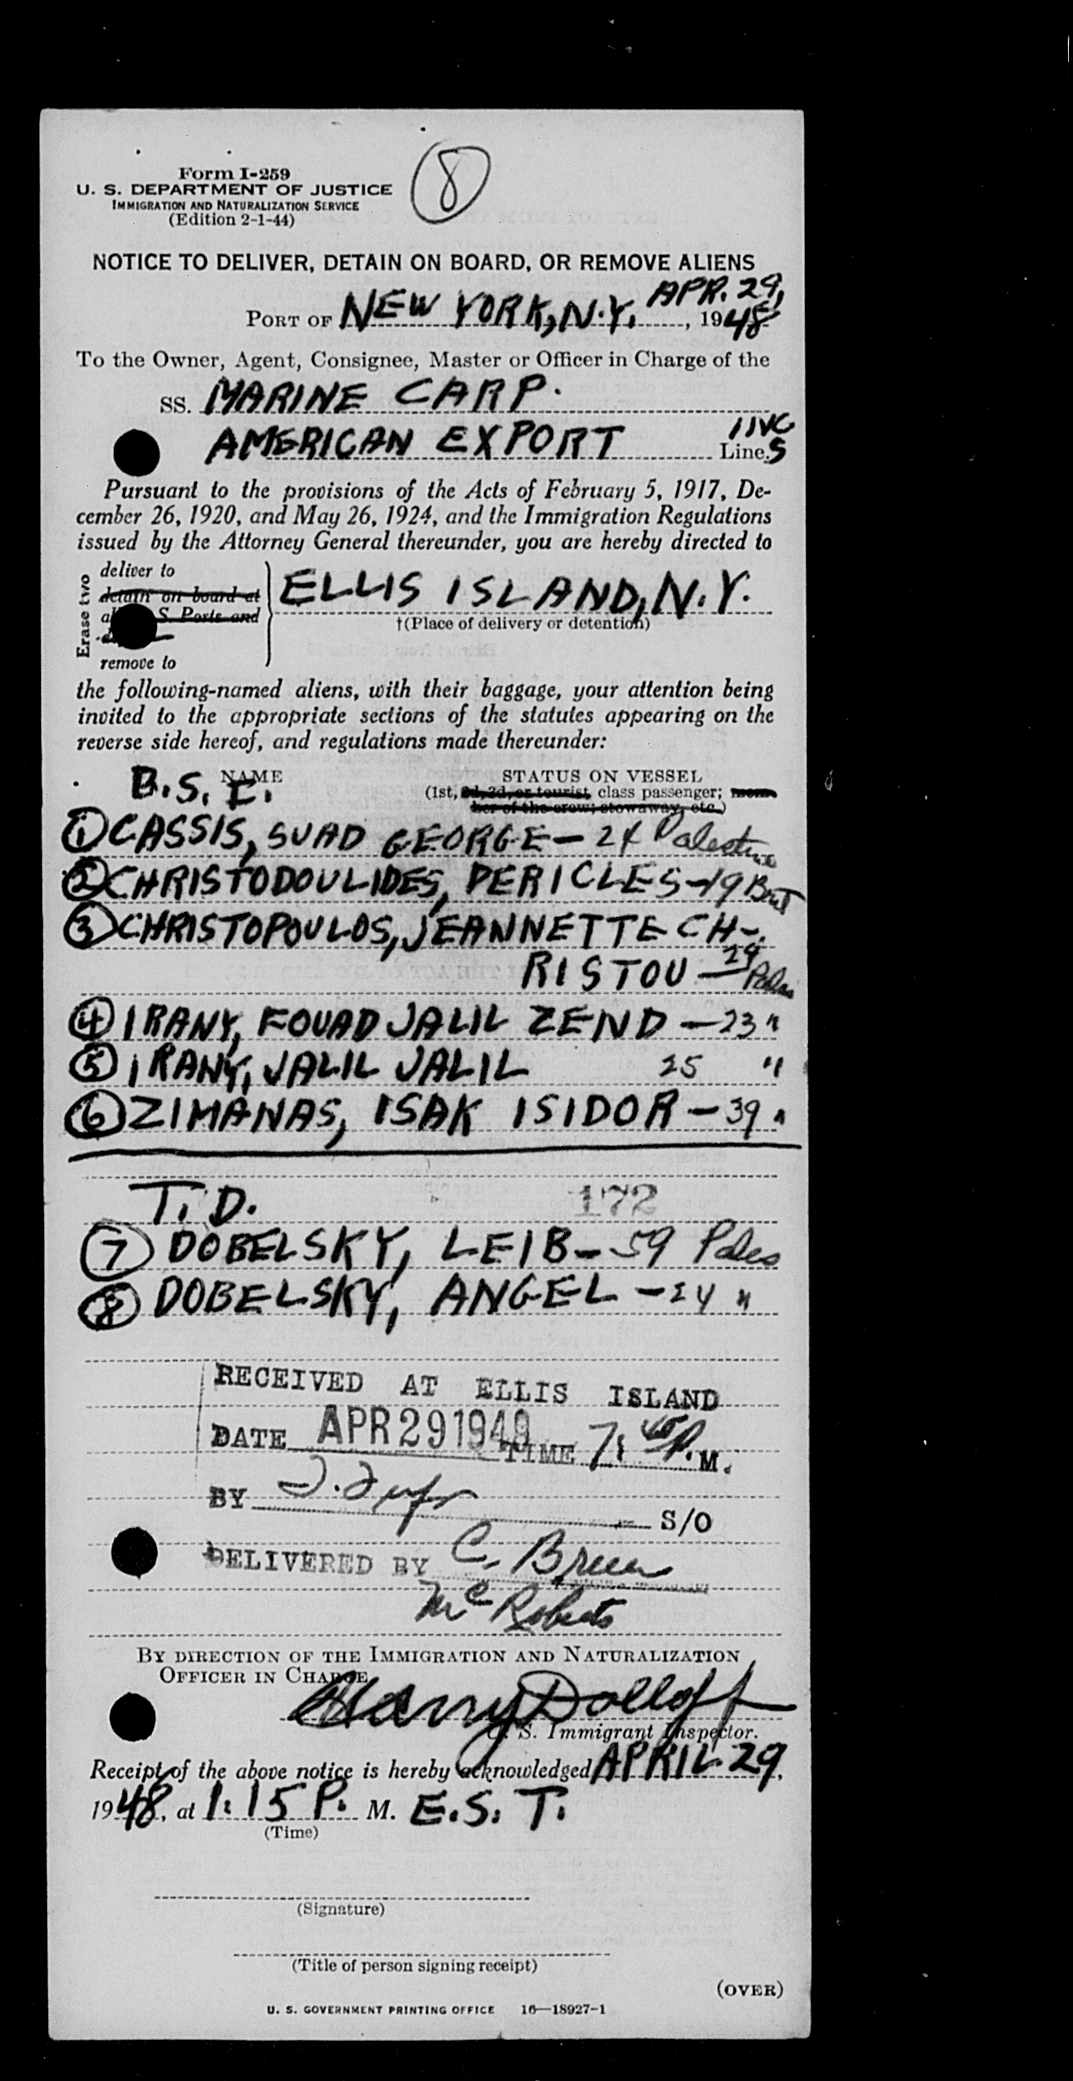 Form I-259
U. S. DEPARTMENT OF JUSTICE
IMMIGRATION AND NATURALIZATION SERVICE
(Edition 2-1-44)
8
NOTICE TO DELIVER, DETAIN ON BOARD, OR REMOVE ALIENS
APR. 29,
PORT OF NEW YORK, N.Y. , 1948
To the Owner, Agent, Consignee, Master or Officer in Charge of the
SS. MARINE CARP.
AMERICAN EXPORT Line.S
Pursuant to the provisions of the Acts of February 5, 1917, De-
cember 26, 1920, and May 26, 1924, and the Immigration Regulations
issued by the Attorney General thereunder, you are hereby directed to
Erase two
deliver to
detain on board at
S. Ports and
remove to
ELLIS ISLAND, N.Y.
†(Place of delivery or detention)
the following-named aliens, with their baggage, your attention being
invited to the appropriate sections of the statutes appearing on the
reverse side hereof, and regulations made thereunder:
B.S.I. NAME STATUS ON VESSEL
(1st, 2d, 3d, or tourist class passenger; mem-
ber of the crew; stowaway, etc.)
1 CASSIS, SUAD GEORGE - 24 Palestine
2 CHRISTODOULIDES, PERICLES - 19 Brit
3 CHRISTOPOULOS, JEANNETTE CH-
RISTOU - 29 Pales
4 IRANY, FOUAD JALIL ZEND - 23 "
5 IRANY, JALIL JALIL 25 "
6 ZIMANAS, ISAK ISIDOR - 39 "
T.D. 172
7 DOBELSKY, LEIB - 59 Pales
8 DOBELSKY, ANGEL - 24 "
RECEIVED AT ELLIS ISLAND
DATE APR 29 1948 TIME 7:45 P.M.
BY S/O
DELIVERED BY C. Breen
McRoberts
BY DIRECTION OF THE IMMIGRATION AND NATURALIZATION
OFFICER IN CHARGE
Harry Dolloff
U. S. Immigrant Inspector.
Receipt of the above notice is hereby acknowledged APRIL 29,
1948, at 1:15 P. M. E.S.T.
(Time)
(Signature)
(Title of person signing receipt)
(OVER)
U. S. GOVERNMENT PRINTING OFFICE 16—18927-1